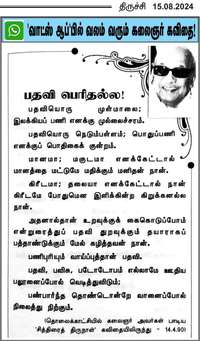 திருச்சி 15.08.2024
'வாட்ஸ் ஆப்'பில் வலம் வரும் கலைஞர் கவிதை!
பதவி பெரிதல்ல!
பதவியொரு முள்மாலை;
இலக்கியப் பணி எனக்கு முல்லைச்சரம்.
பதவியொரு நெடும்பள்ளம்; பொதுப்பணி
எனக்குப் பொதிகைக் குன்றம்.
மானமா; மகுடமா எனக்கேட்டால்
மானத்தை மட்டுமே மதிக்கும் மனிதன் நான்.
கிரீடமா; தலையா எனக்கேட்டால் நான்
கிரீடமே போதுமென இளிக்கின்ற கிறுக்கனல்ல
நான்.
அதனால்தான் உறவுக்குக் கைகொடுப்போம்
என்றுரைத்துப் பதவி துறவுக்கும் தயாராகப்
பத்தாண்டுக்கும் மேல் கழித்தவன் நான்.
பணிபுரியும் வாய்ப்புத்தான் பதவி.
பதவி, பவிசு, படோடோபம் எல்லாமே ஊதிய
பலூனைப்போல் வெடித்துவிடும்;
பண்பார்ந்த தொண்டொன்றே வானைப்போல்
நிலைத்து நிற்கும்.
(தொலைக்காட்சியில் கலைஞர் அவர்கள் பாடிய
'சித்திரைத் திருநாள்' கவிதையிலிருந்து - 14.4.90)